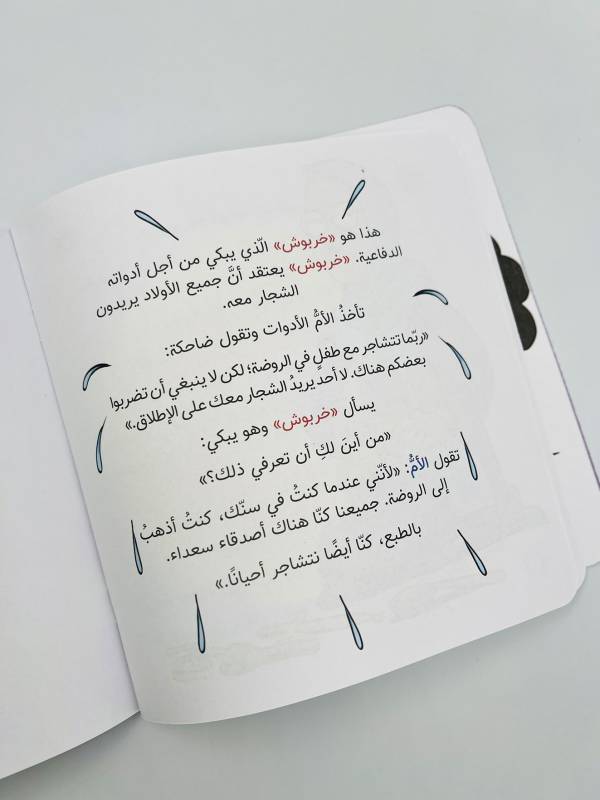 هذا هو «خربوش» الّذي يبكي من أجل أدواته
الدفاعية. «خربوش» يعتقد أنَّ جميع الأولاد يريدون
الشجار معه.
تأخذُ الأمُّ الأدوات وتقول ضاحكة:
«ربّما تتشاجر مع طفلٍ في الروضة؛ لكن لا ينبغي أن تضربوا
بعضكم هناك. لا أحد يريدُ الشجار معك على الإطلاق.»
يسأل «خربوش» وهو يبكي:
«من أينَ لكِ أن تعرفي ذلك؟»
تقول الأمُّ: «لأنّني عندما كنتُ في سنّك، كنتُ أذهبُ
إلى الروضة. جميعنا كنّا هناك أصدقاء سعداء.
بالطبع، كنّا أيضًا نتشاجر أحيانًا.»